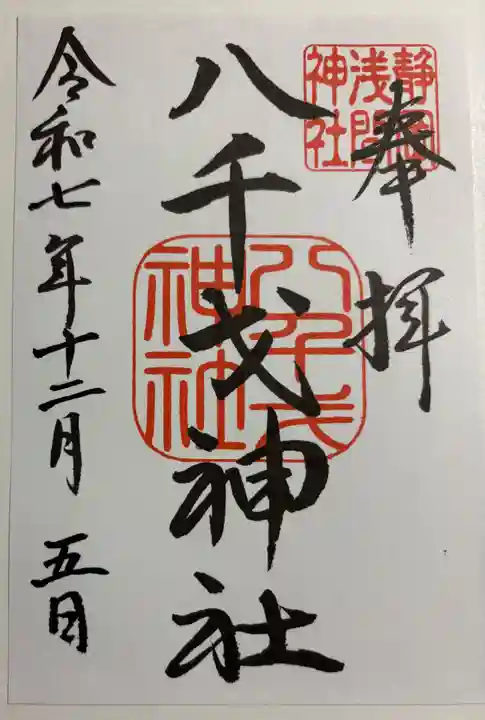 奉拝
静岡
浅間
神社
八千戈神社
八千戈
神社
令和七年十二月 五日